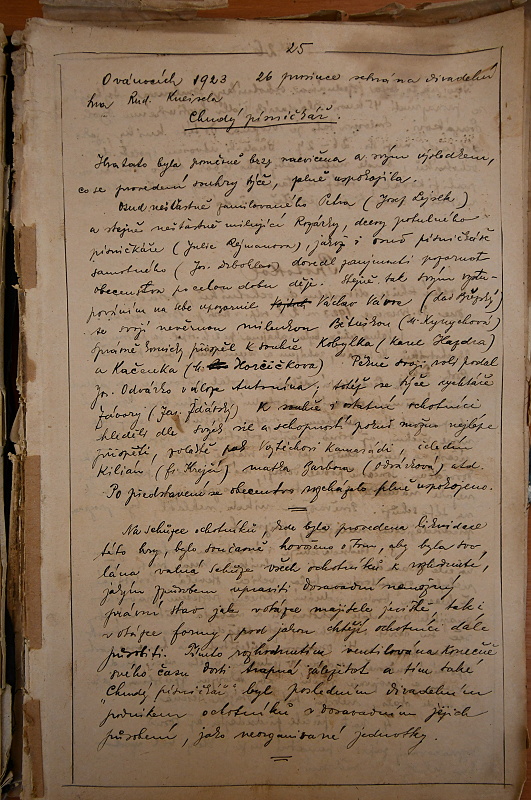 25
O vánocích 1923 26 prosince sehrána divadelní
hra Rud. Kneisela
Chudý písničkář.
Hra tato byla poměrně brzy nacvičena a svým výsledkem,
co se provedení souhry týče, plně uspokojila.
Osud nešťastně zamilovaného Petra (Josef Lejsek)
a stejně nešťastně milující Rozárky, dcery potulného
písničkáře (Julie Rejmanova), jakož i osud písničkáře
samotného (Jos. Drbohlav) dovedl zaujmouti pozornost
obecenstva po celou dobu děje. Stejně tak svým vystu-
pováním na sebe upozornil Václav Vávra (
se svojí nevěrnou milenkou Bětuškou (
Správně komicky přispěl k souhře Kobylka (Karel Hajdra)
a Kačenka (M. Horčičkova). Pěkně svoji roli podal
Jos. Odvárko v úloze Antonína, totéž se týče rychtáře
Závory (Jar. Žďárský) K souhře i ostatní ochotníci
hleděli dle svých sil a schopností pokud možno nejlépe
přispěti, Vojtíchovi kamarádi, čeledín
Kilián (Fr. Krejčí) matka Barbora (Odvárkova) atd.
Po představení se obecenstvo rozcházelo plně uspokojeno.
Na schůzce ochotníků, kde byla provedena likvidace
této hry, bylo současně hovořeno o tom, aby byla svo-
lána valná schůze všech ochotníků k rozhodnutí,
jakým způsobem upraviti dosavadní nemožný
právní stav jak v otázce majitele jeviště, tak i
v otázce formy, pod jakou chtějí ochotníci dále
působiti. Tímto rozhodnutím ventilována konečně
svého času dosti trapná záležitost a tím také
"Chudý písničkář" byl posledním divadelním
podnikem ochotníků v dosavadním jejich
působení, jako neorganisované jednotky.